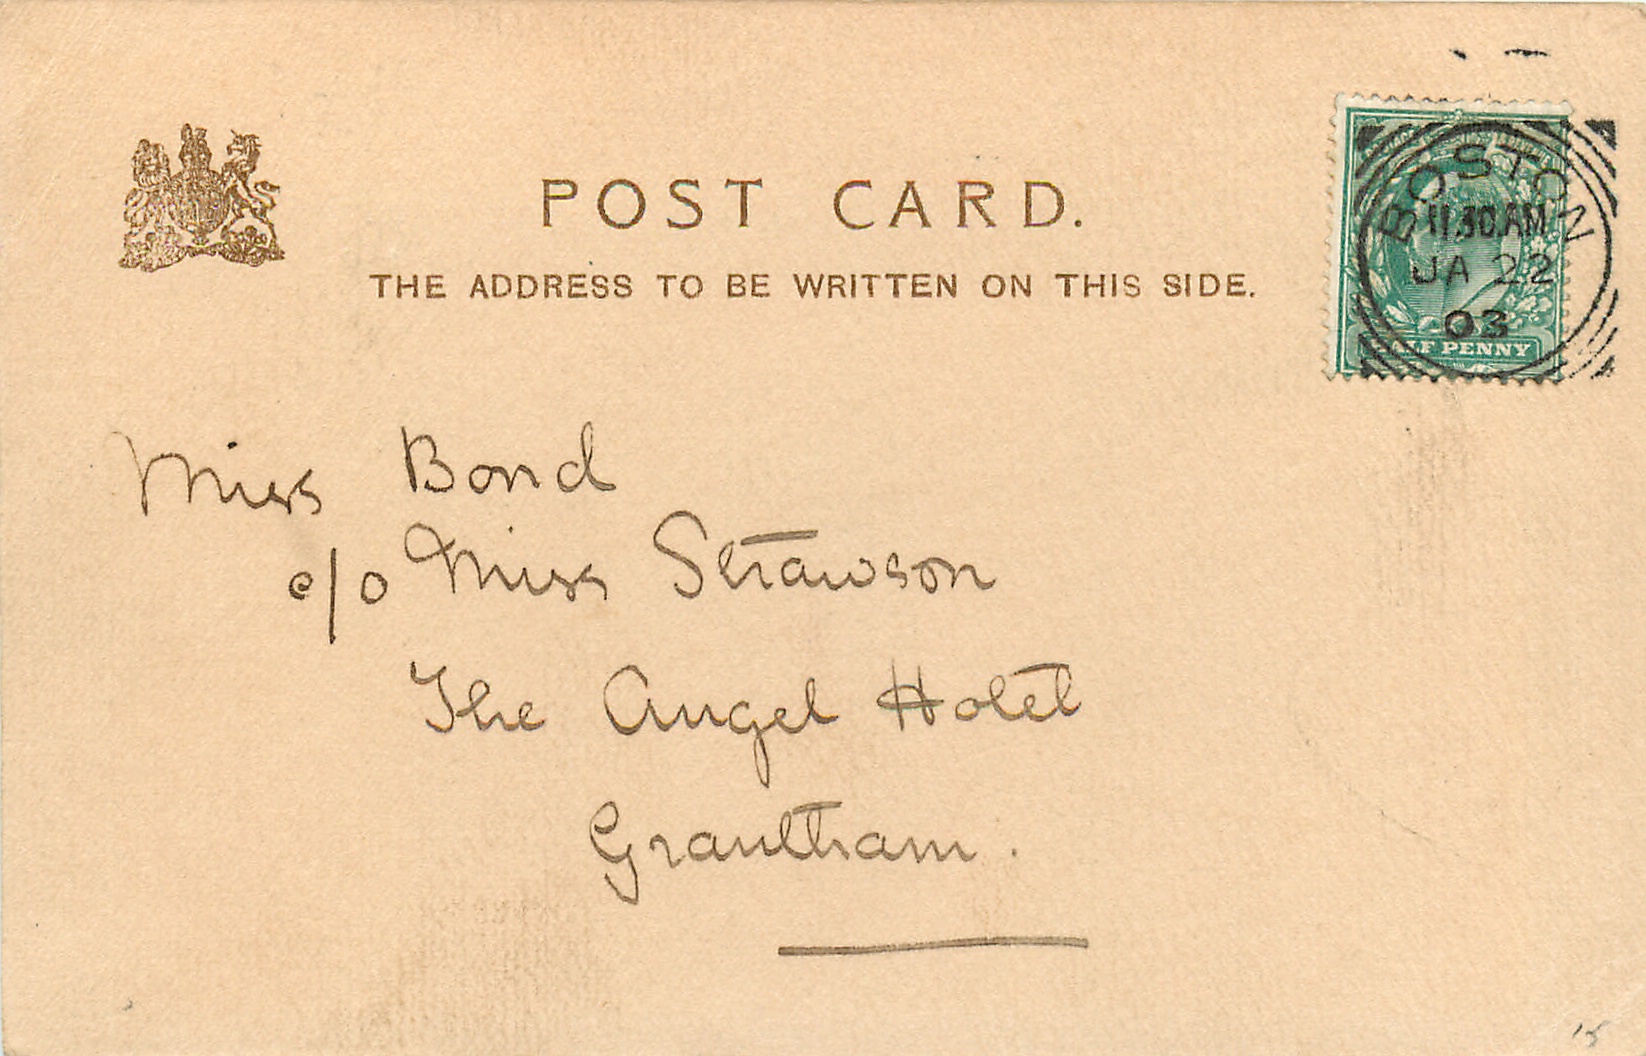 POST CARD.
THE ADDRESS TO BE WRITTEN ON THIS SIDE.
BOSTON
11.30.AM
JA 22
03
HALF PENNY
Miss Bond
c/o Miss Strawson
The Angel Hotel
Grantham.
15